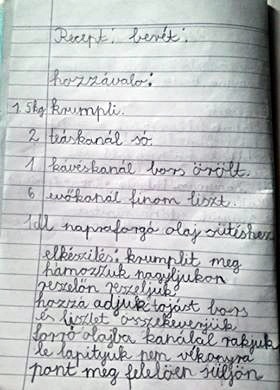 Recept: berét:
hozzávaló:
1.5kg krumpli.
2 teáskanál só.
1 kávéskanál bors őrölt.
6 evőkanál finom liszt.
1dl napraforgó olaj sütéshez
elkészilés: krumplit meg
hámozzuk nagyljukon
reszelőn reszeljük
hozzá adjuk tojást bors
és lisztet összekeverjük
forró olajba kanálal rakjuk
le lapítyuk pen vikonyra
pont meg felelően süljön